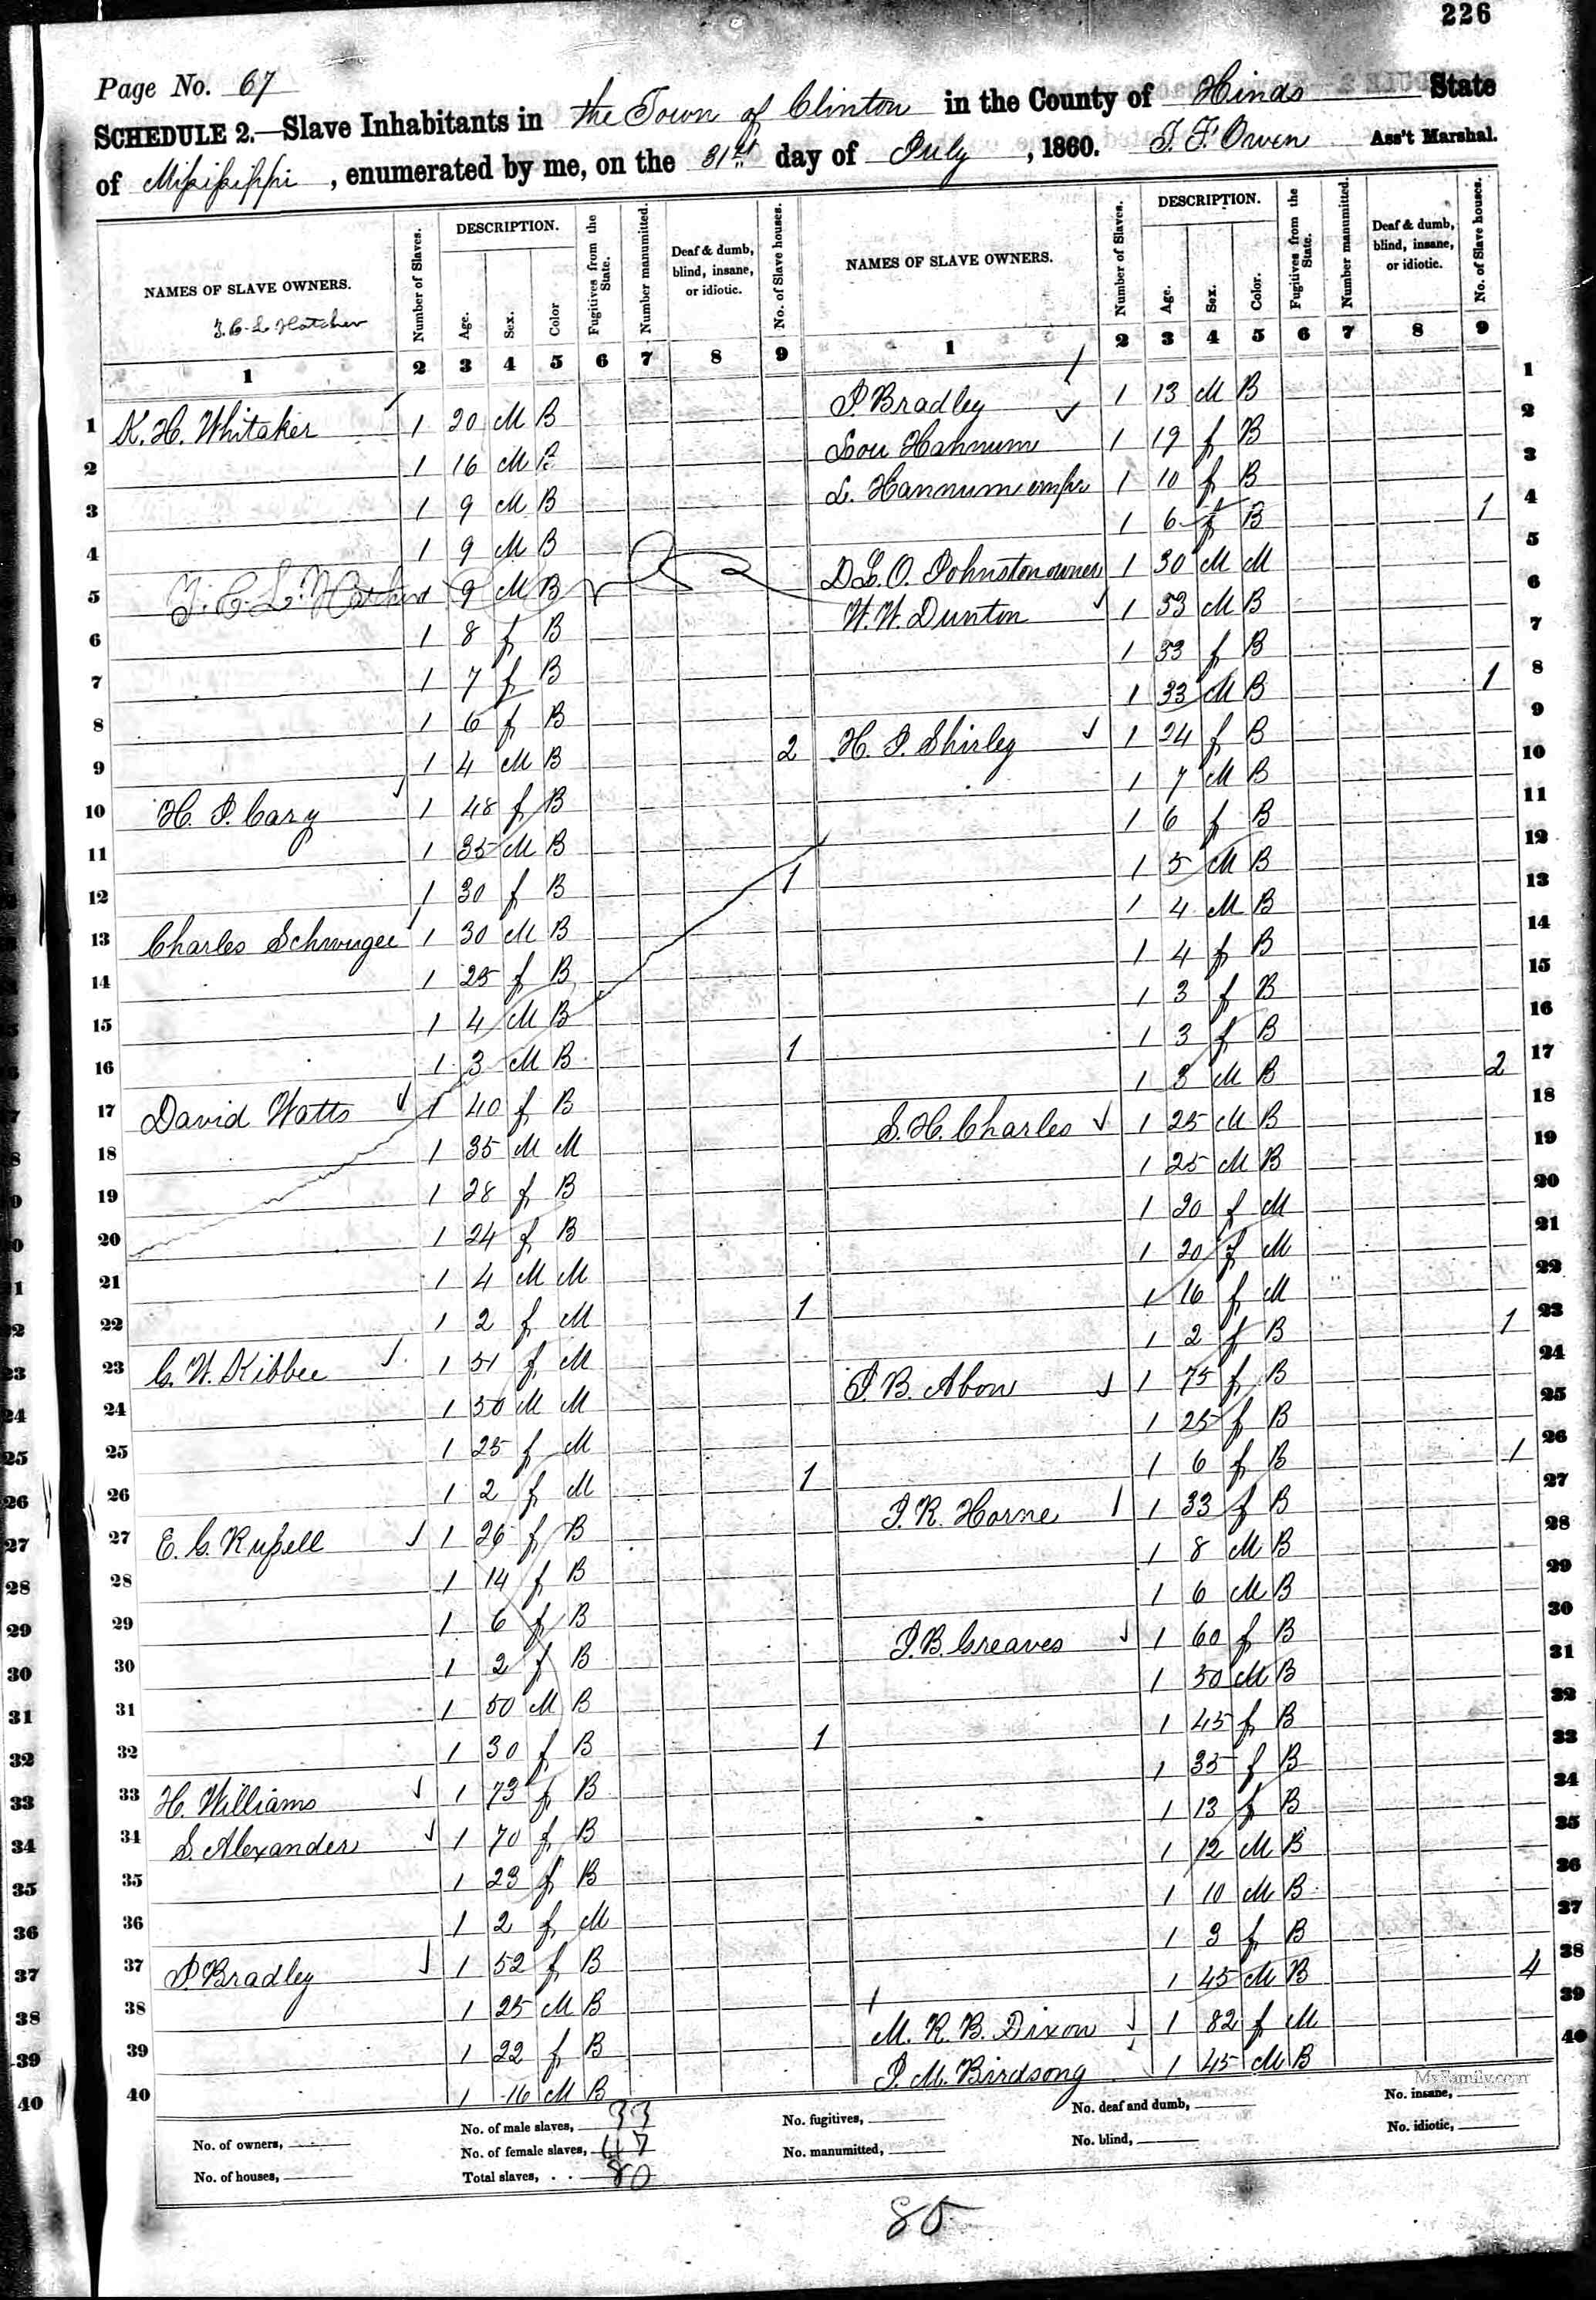 226
Page No. 67
SCHEDULE 2.—Slave Inhabitants in the Town of Clinton in the County of Hinds State
of Mississippi, enumerated by me, on the 31st day of July, 1860. T. F. Owen Ass't Marshal.
NAMES OF SLAVE OWNERS. Number of Slaves. DESCRIPTION. Age. Sex. Color Fugitives from the State. Number manumitted. Deaf & dumb, blind, insane, or idiotic. No. of Slave houses.
T. C. L. Hatcher
1 2 3 4 5 6 7 8 9
1 K. H. Whitaker 1 20 M B
2 1 16 M B
3 1 9 M B
4 1 9 M B
5 T. C. L. Hatcher 1 9 M B
6 1 8 f B
7 1 7 f B
8 1 6 f B
9 1 4 M B 2
10 H. J. Cary 1 48 f B
11 1 35 M B
12 1 30 f B 1
13 Charles 1 30 M B
14 1 25 f B
15 1 4 M B
16 1 3 M B 1
17 David Watts 1 40 f B
18 1 35 M M
19 1 28 f B
20 1 24 f B
21 1 4 M M
22 1 2 f M 1
23 C. W. Kibbee 1 51 f M
24 1 50 M M
25 1 25 f M
26 1 2 f M 1
27 E. G. Russell 1 26 f B
28 1 14 f B
29 1 6 f B
30 1 2 f B
31 1 50 M B
32 1 30 f B 1
33 H. Williams 1 73 f B
34 S. Alexander 1 70 f B
35 1 23 f B
36 1 2 f M
37 J Bradley 1 52 f B
38 1 25 M B
39 1 22 f B
40 1 16 M B
NAMES OF SLAVE OWNERS. Number of Slaves. DESCRIPTION. Age. Sex. Color. Fugitives from the State. Number manumitted. Deaf & dumb, blind, insane, or idiotic. No. of Slave houses.
1 2 3 4 5 6 7 8 9
J Bradley 1 13 M B 1
Lou Hannum 1 19 f B 2
L. Hannum 1 10 f B 3
1 6 f B 1 4
D. L. O. Johnston owner 1 30 M M 5
W. W. Dunton 1 53 M B 6
1 33 f B 7
1 33 M B 1 8
H. J. Shirley 1 24 f B 9
1 7 M B 10
1 6 f B 11
1 5 M B 12
1 4 M B 13
1 4 f B 14
1 3 f B 15
1 3 f B 16
1 3 M B 2 17
S. H. Charles 1 25 M B 18
1 25 M B 19
1 20 f M 20
1 20 f M 21
1 16 f M 22
1 2 f B 1 23
J. B. 1 75 f B 24
1 25 f B 25
1 6 f B 1 26
J. R. Horne 1 33 f B 27
1 8 M B 28
1 6 M B 29
J. B. Greaves 1 60 f B 30
1 50 M B 31
1 45 f B 32
1 35 f B 33
1 13 f B 34
1 12 M B 35
1 10 M B 36
1 3 f B 37
1 45 M B 4 38
M. R. B. Dixon 1 82 f M 39
J. M. Birdsong 1 45 M B 40
MyFamily.com
No. of owners, No. of male slaves, 33 No. fugitives, No. deaf and dumb, No. insane,
No. of houses, No. of female slaves, 47 No. manumitted, No. blind, No. idiotic,
Total slaves, 80
80